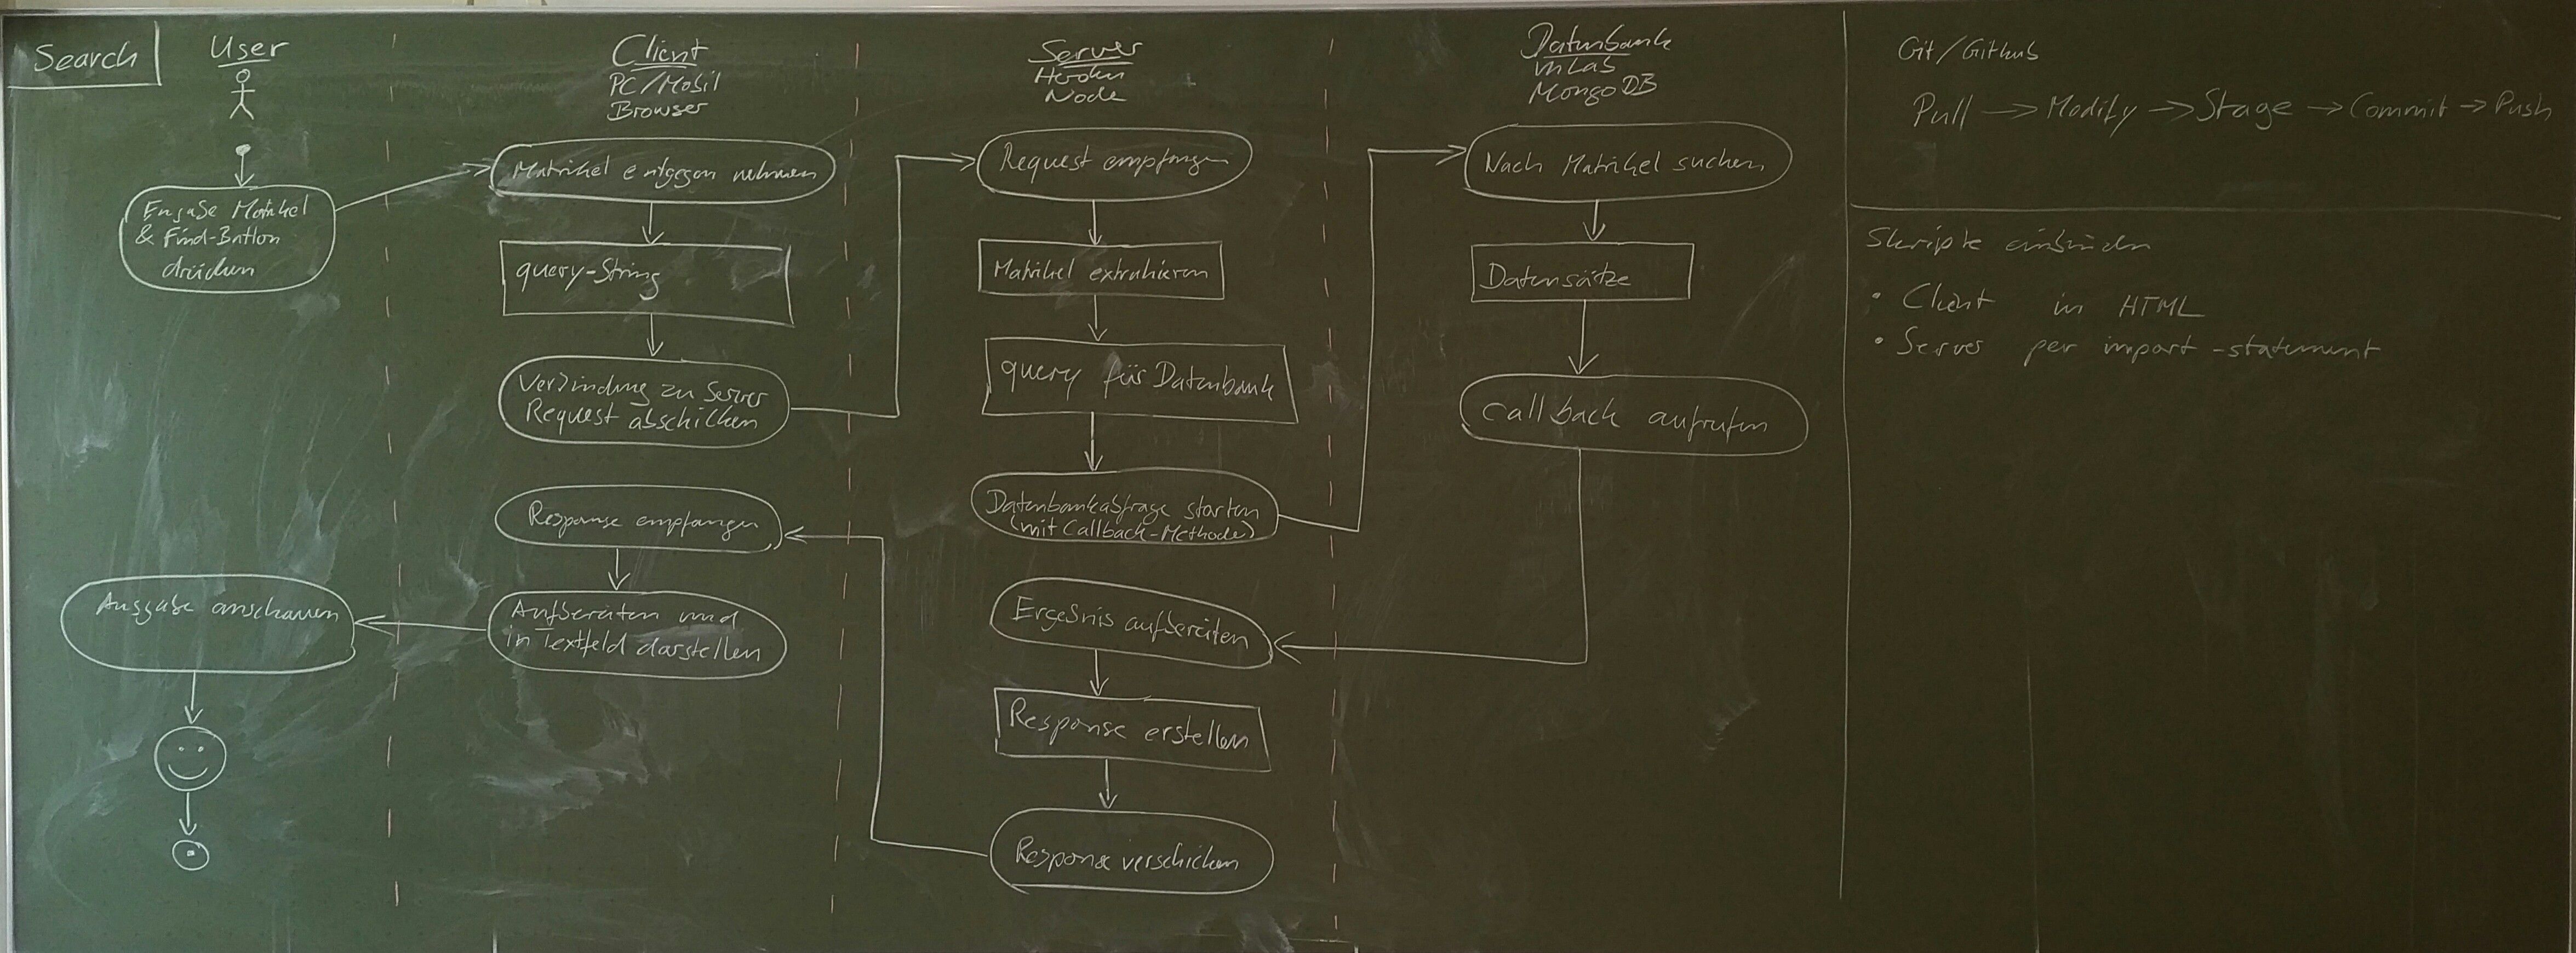 Search
User
Eingabe Matrikel
& Find-Button
drücken
Ausgabe anschauen
Client
PC/Mobil
Browser
Matrikel entgegen nehmen
query-String
Verbindung zu Server
Request abschicken
Response empfangen
Aufbereiten und
in Textfeld darstellen
Server
Heroku
Node
Request empfangen
Matrikel extrahieren
query für Datenbank
Datenbankabfrage starten
(mit Callback-Methode)
Ergebnis aufbereiten
Response erstellen
Response verschicken
Datenbank
mLab
MongoDB
Nach Matrikel suchen
Datensätze
Callback aufrufen
Git/Github
Pull → Modify → Stage → Commit → Push
Skripte einbinden
• Client in HTML
• Server per import-statement